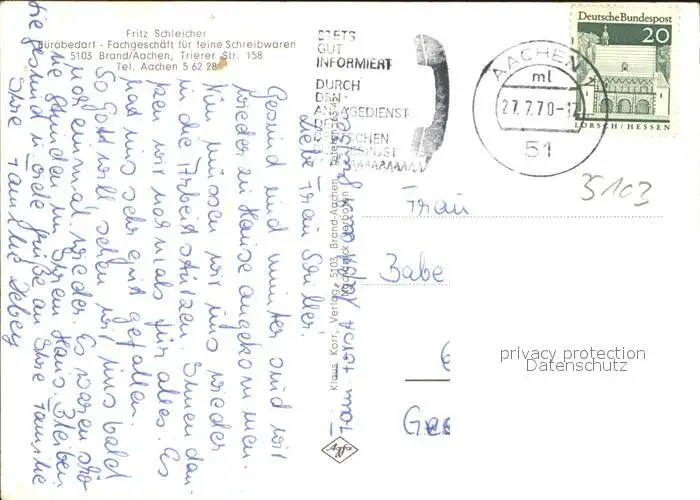 Fritz Schleicher
Bürobedarf - Fachgeschäft für feine Schreibwaren
5103 Brand/Aachen, Trierer Str. 158
Tel. Aachen 5 62 28
STETS
GUT
INFORMIERT
DURCH
DEN
ANSAGEDIENST
DER
DEUTSCHEN
BUNDESPOST
AACHEN
ml
27.7.70-17
51
Deutsche Bundespost
20
LORSCH/HESSEN
5103
Liebe Frau
Gesund und munter sind wir
wieder zu Hause angekommen.
Nun müssen wir uns wieder
in die Arbeit stürzen. Ihnen dan-
ken wir nochmals für alles. Es
hat uns sehr gut gefallen.
So Gott will sehen wir uns bald
noch einmal wieder. Es waren schö
ne Stunden in Ihrem Haus. Bleiben
Sie gesund u. viele Grüße an Ihre Familie
Ihre Familie
Klaus Korr, Verlag, 5103 Brand-Aachen, Telefon
Nachdruck verboten
Frau
Babe
privacy protection
Datenschutz